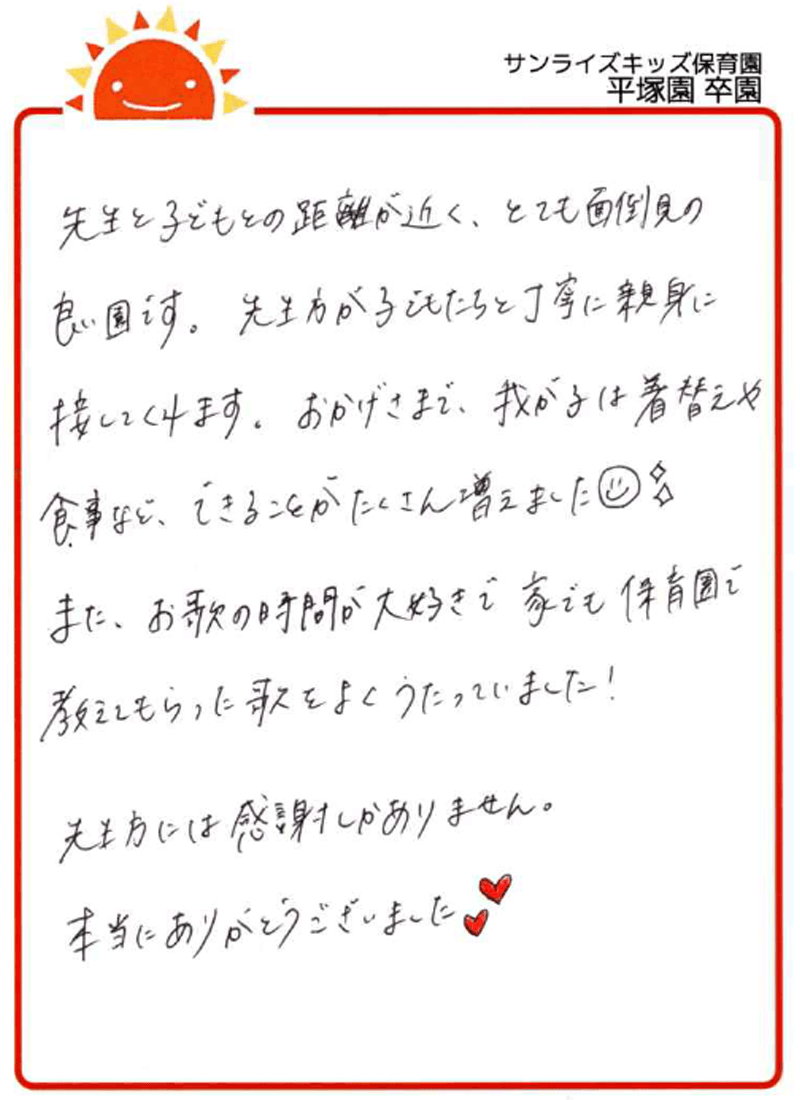 サンライズキッズ保育園
平塚園 卒園
先生と子どもとの距離が近く、とても面倒見の
良い園です。先生方が子どもたちと丁寧に親身に
接してくれます。おかげさまで、我が子は着替えや
食事など、できることがたくさん増えました
また、お歌の時間が大好きで 家でも保育園で
教えてもらった歌をよくうたっていました！
先生方には感謝しかありません。
本当にありがとうございました